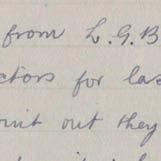 from L.G.B
ctors for las
oint out they